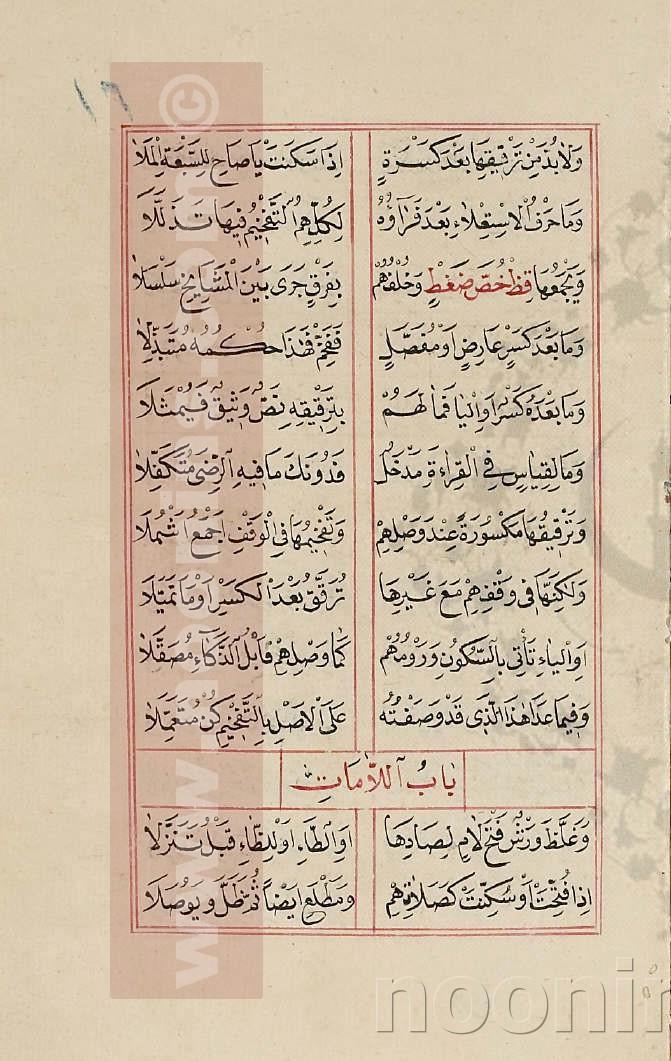 ١٦
وَلَابُدَّمِنْ تَرْقِيقِهَا بَعْدَ كَسْرَةٍ اِذَا سَكَنَتْ يَا صَاحِ لِلسَّبْعَةِ الْمَلَا
وَمَا حَرْفُ الْاِسْتِعْلَاءِ بَعْدَ فَرَاؤُهُ لِكُلِّهِمُ التَّفْخِيمُ فِيهَا تَذَلَّلَا
وَيَجْمَعُهَا قِظْ خُصَّ ضَغْطٍ وَخُلْفُهُمْ بِفِرْقٍ جَرَى بَيْنَ الْمَشَايِخِ سَلْسَلَا
وَمَا بَعْدَ كَسْرٍ عَارِضٍ اَوْ مُفَصَّلٍ فَفَخِّمْ فَهٰذَا حُكْمُهُ مُتَبَذِّلَا
وَمَا بَعْدَهُ كَسْرٌ اَوِ الْيَا فَمَا لَهُمْ بِتَرْقِيقِهِ نَصٌّ وَثِيقٌ فَيَمْثُلَا
وَمَا لِقِيَاسٍ فِي الْقِرَاءَةِ مَدْخَلٌ فَدُونَكَ مَا فِيهِ الرِّضَى مُتَكَفِّلَا
وَتَرْقِيقُهَا مَكْسُورَةً عِنْدَ وَصْلِهِمْ وَتَفْخِيمُهَا فِي الْوَقْفِ اَجْمَعُ اَشْمُلَا
وَلٰكِنَّهَا فِي وَقْفِهِمْ مَعَ غَيْرِهَا تُرَقَّقُ بَعْدَ الْكَسْرِ اَوْ مَا تَمَيَّلَا
اَوِ الْيَاءِ تَأْتِي بِالسُّكُونِ وَرَوْمُهُمْ كَمَا وَصْلِهِمْ فَابْلُ الذَّكَاءَ مُصَقَّلَا
وَفِيمَا عَدَا هٰذَا الَّذِي قَدْ وَصَفْتُهُ عَلَى الْاَصْلِ بِالتَّفْخِيمِ كُنْ مُتَعَمِّلَا
بَابُ اللَّامَاتِ
وَغَلَّظَ وَرْشٌ فَتْحَ لَامٍ لِصَادِهَا اَوِ الطَّاءِ اَوْ لِلظَّاءِ قَبْلُ تَنَزُّلَا
اِذَا فُتِحَتْ اَوْ سُكِّنَتْ كَصَلَاتِهِمْ وَمَطْلَعِ اَيْضًا ثُمَّ ظَلَّ وَيُوصَلَا